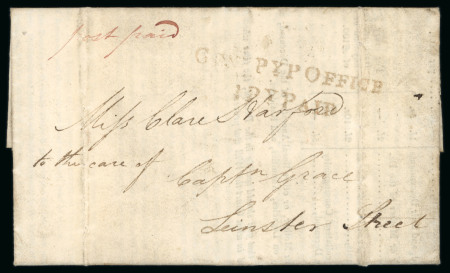 post paid
PYP OFFICE
1DY PAID
Miss Clare Harford
to the care of
Captn Grace
Leinster Street